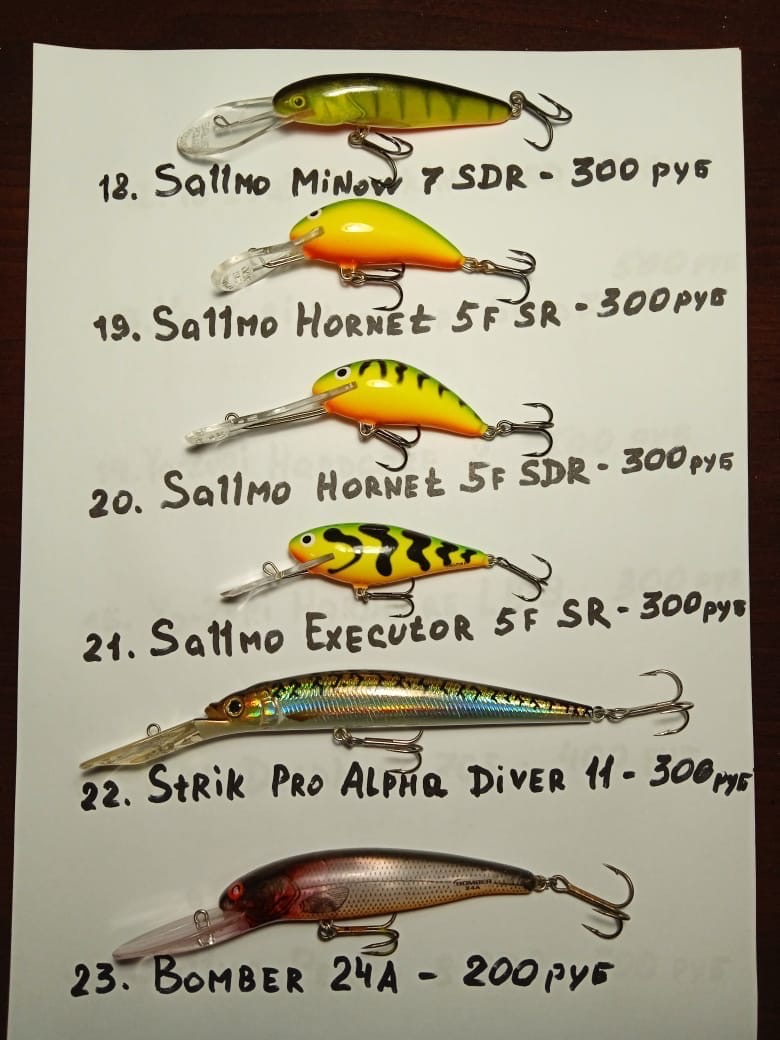 18. Sallmo Minow 7 SDR - 300 руб
19. Sallmo Hornet 5F SR - 300 руб
20. Sallmo Hornet 5F SDR - 300 руб
21. Sallmo Executor 5F SR - 300 руб
22. Strik Pro Alpha Diver 11 - 300 руб
BOMBER
24A
23. Bomber 24A - 200 руб